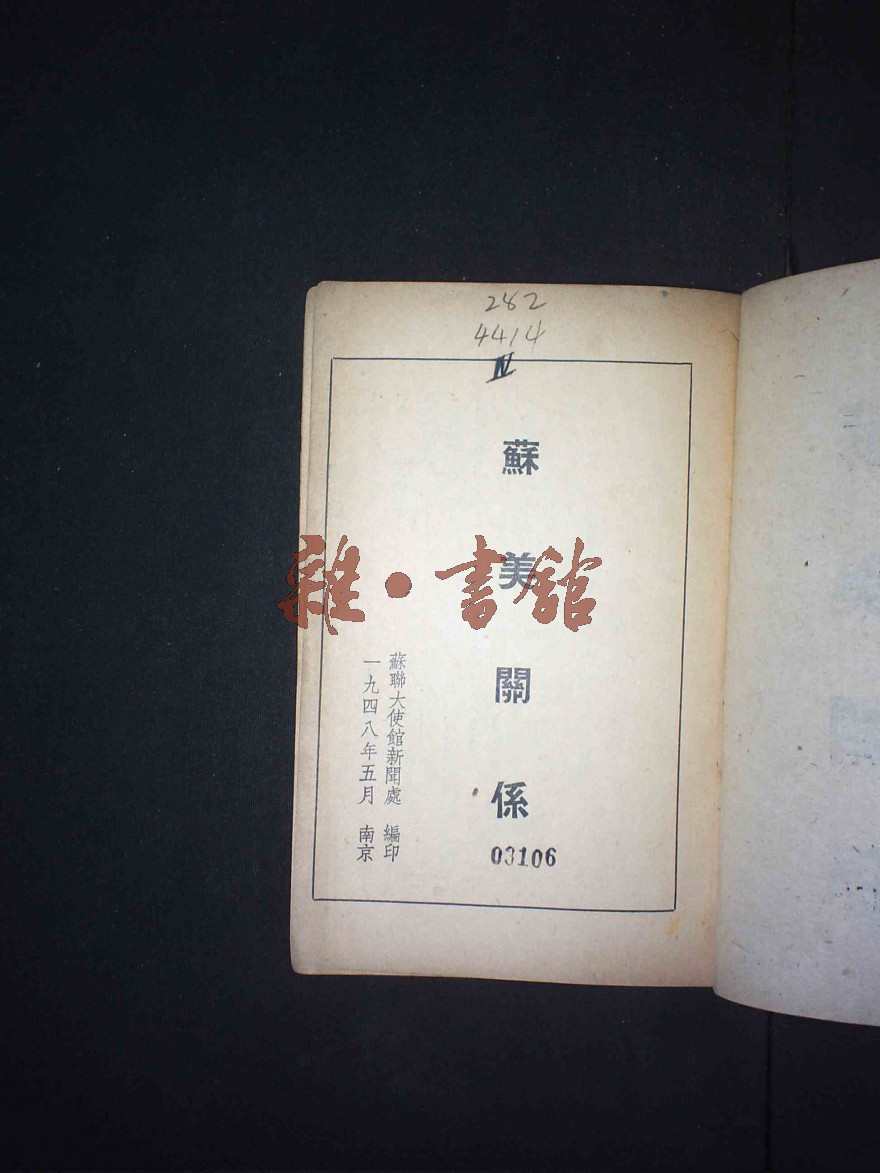 282
4414
IV
蘇美關係
03106
蘇聯大使館新聞處 編印
一九四八年五月 南京
雜·書館